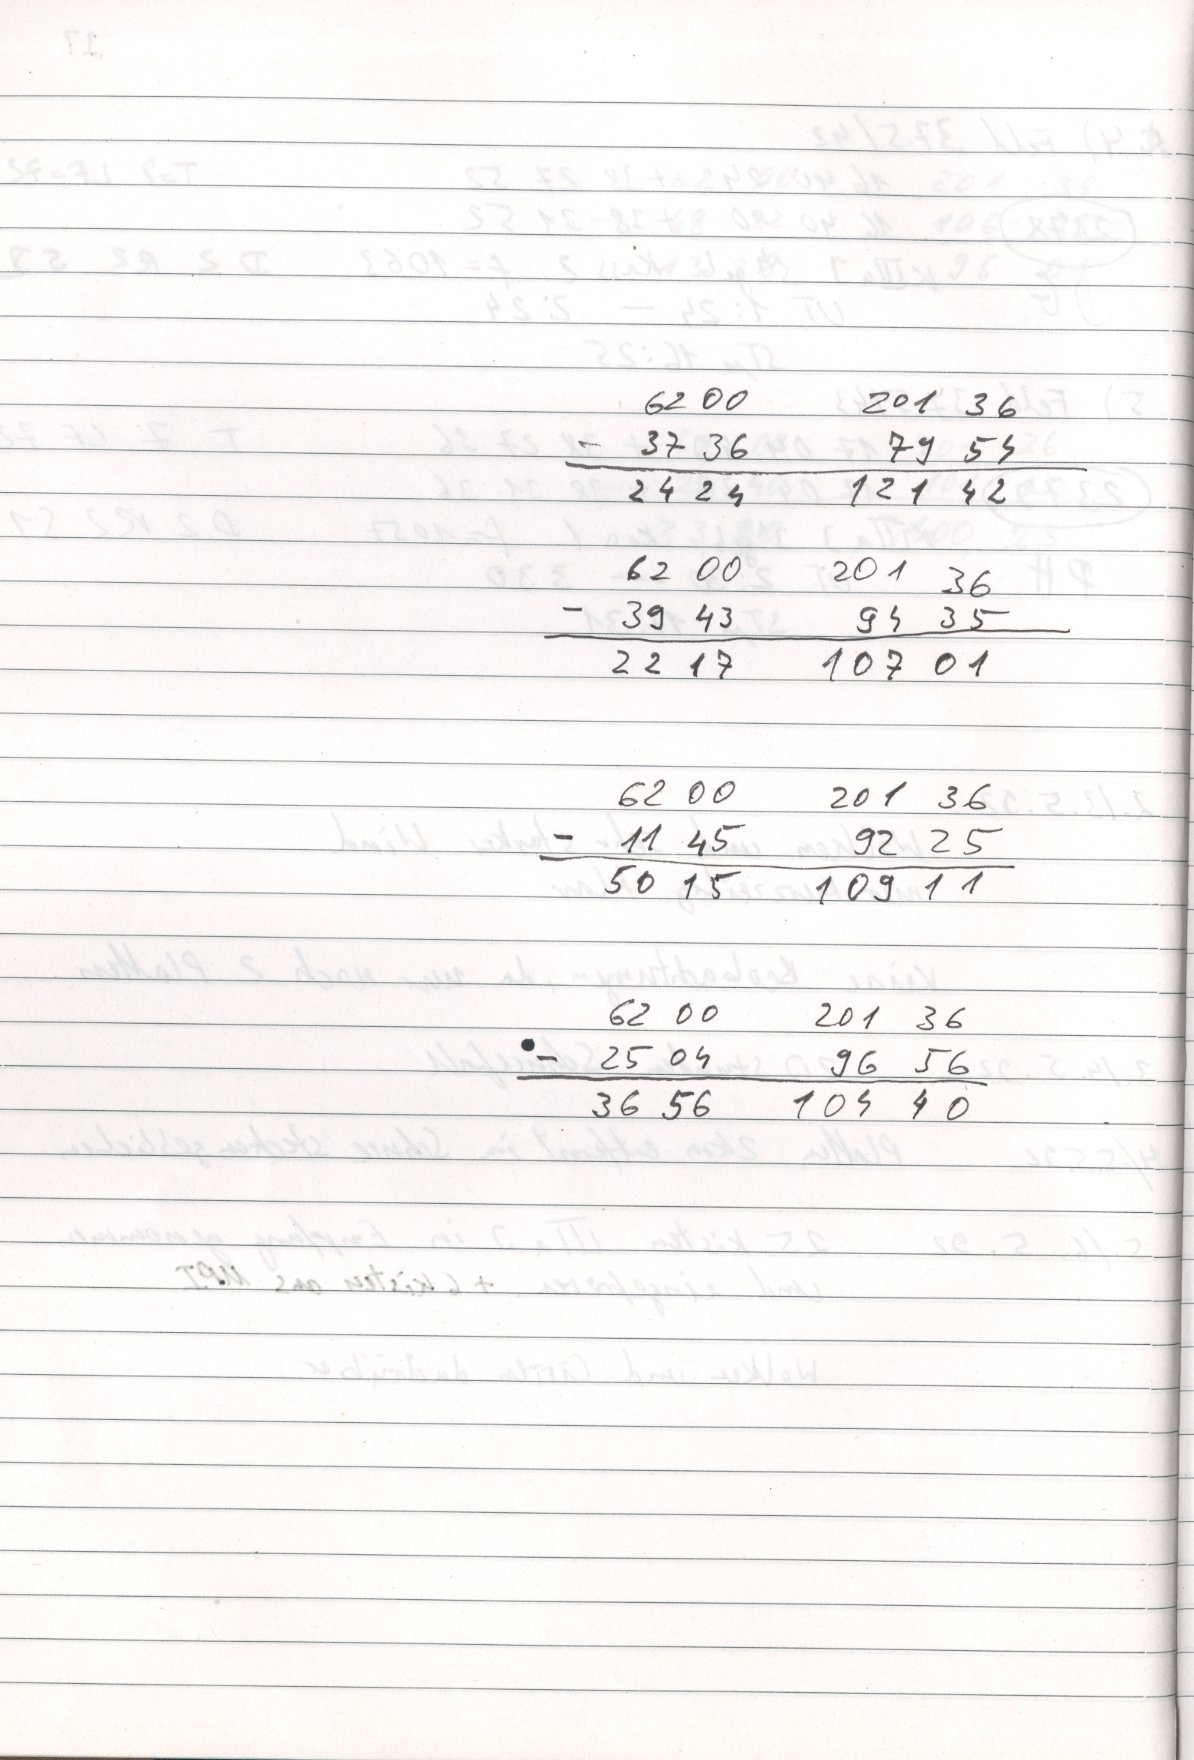 6200 201 36
- 37 36 79 54
24 24 121 42
62 00 201 36
- 39 43 94 35
22 17 107 01
62 00 201 36
- 11 45 92 25
50 15 109 11
62 00 201 36
- 25 04 96 56
36 56 104 40